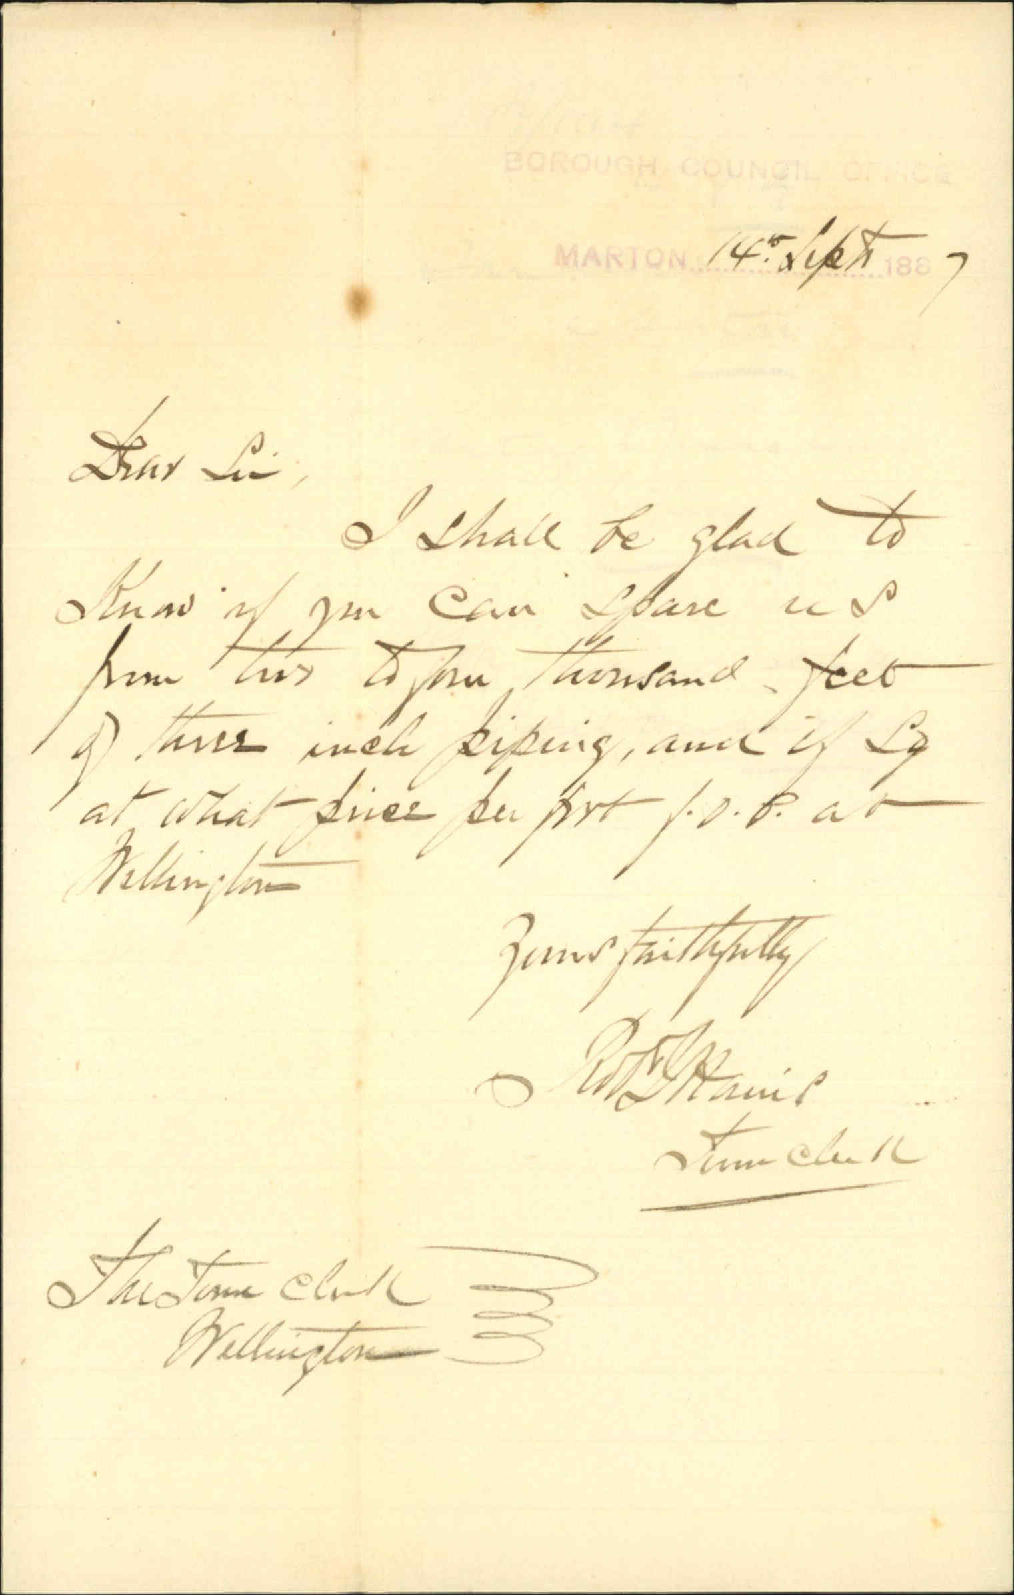 BOROUGH COUNCIL OFFICE
MARTON 14th Sept 1887
Dear Sir,
I shall be glad to
Know if you can spare us
from two to four thousand feet
of three inch piping, and if so
at what price per foot f.o.b. at
Wellington
Yours faithfully
Town Clerk
The Town Clerk
Wellington